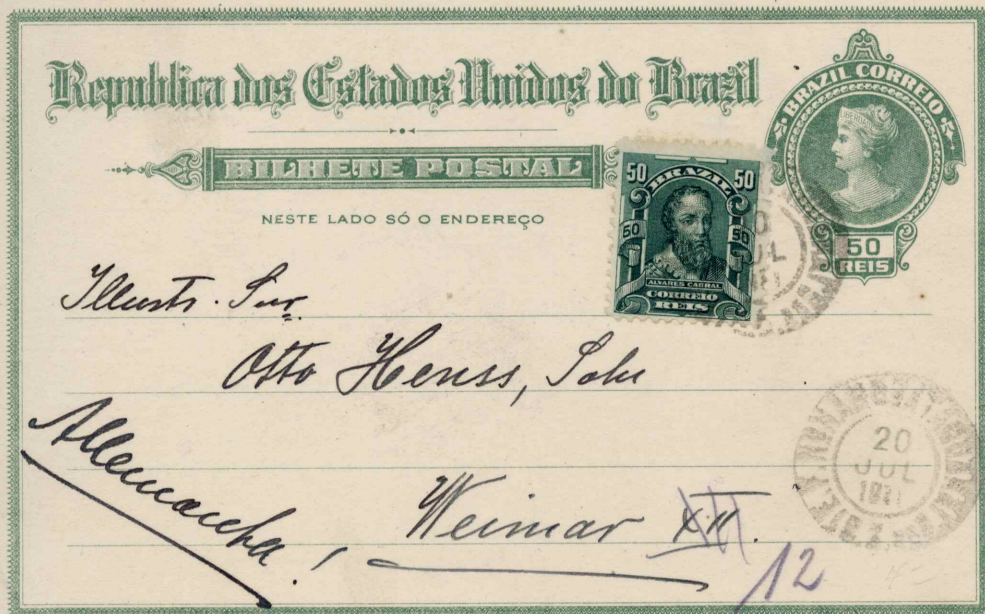 Republica dos Estados Unidos do Brazil
BILHETE POSTAL
NESTE LADO SÓ O ENDEREÇO
BRAZIL CORREIO
50
REIS
50 BRAZIL 50
50 50
ALVARES CABRAL
CORREIO
REIS
JUL
Illustr. Snr.
Otto Henss, Sohn
Allemanha,
Weimar XII
12
20
JUL